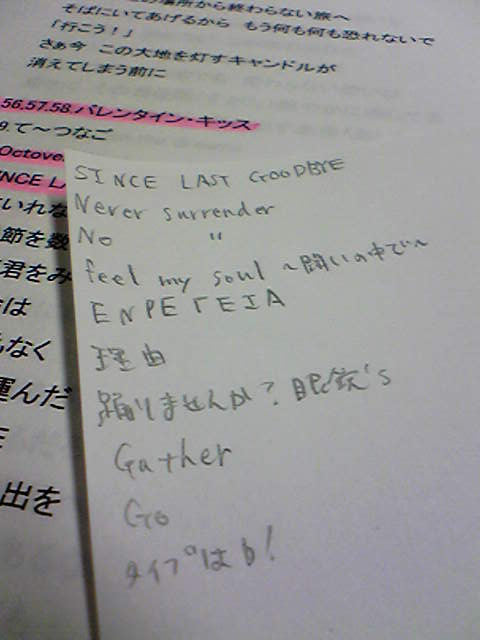 の場所から終わらない旅へ
そばにいてあげるから もう何も何も恐れないで
「行こう！」
さぁ今 この大地を灯すキャンドルが
消えてしまう前に
56.57.58.バレンタイン・キッス
9.て～つなご
Octove
INCE L
いれな
節を数
君をみ
は
なく
運んだ
出を
SINCE LAST GOODBYE
Never surrender
No 〃
feel my soul ～闘いの中で～
ENPETEIA
理由
踊りませんか？眼鏡's
Gather
Go
タイプはb！